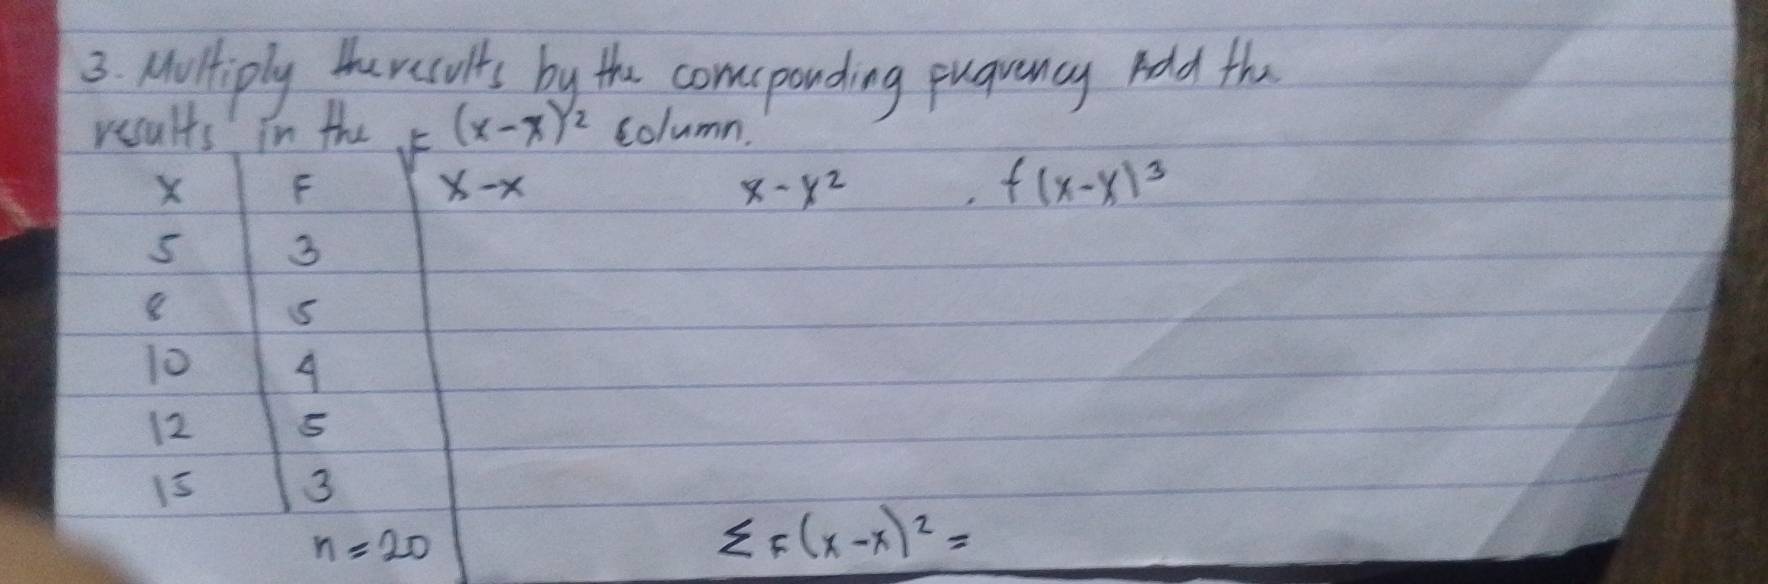 3. Multiply the results by the corresponding frequency Add the
results in the F (x-x)² column.
X F X-x x-x² . f(x-x)³
5 3
8 5
10 4
12 5
15 3
n=20 Σ F(x-x)² =